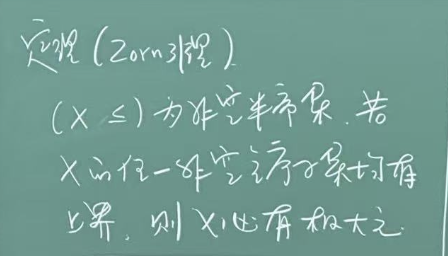 定理(Zorn引理)
(X ≤)为非空半序集.若
X的任一非空全序子集均有
上界,则X必有极大元.